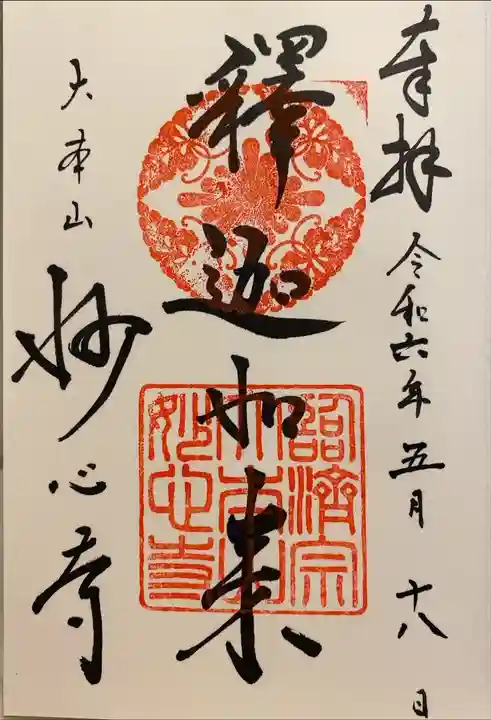 奉拝 令和六年五月十八日
釋迦如来
大本山 妙心寺
臨済宗
大本山
妙心寺